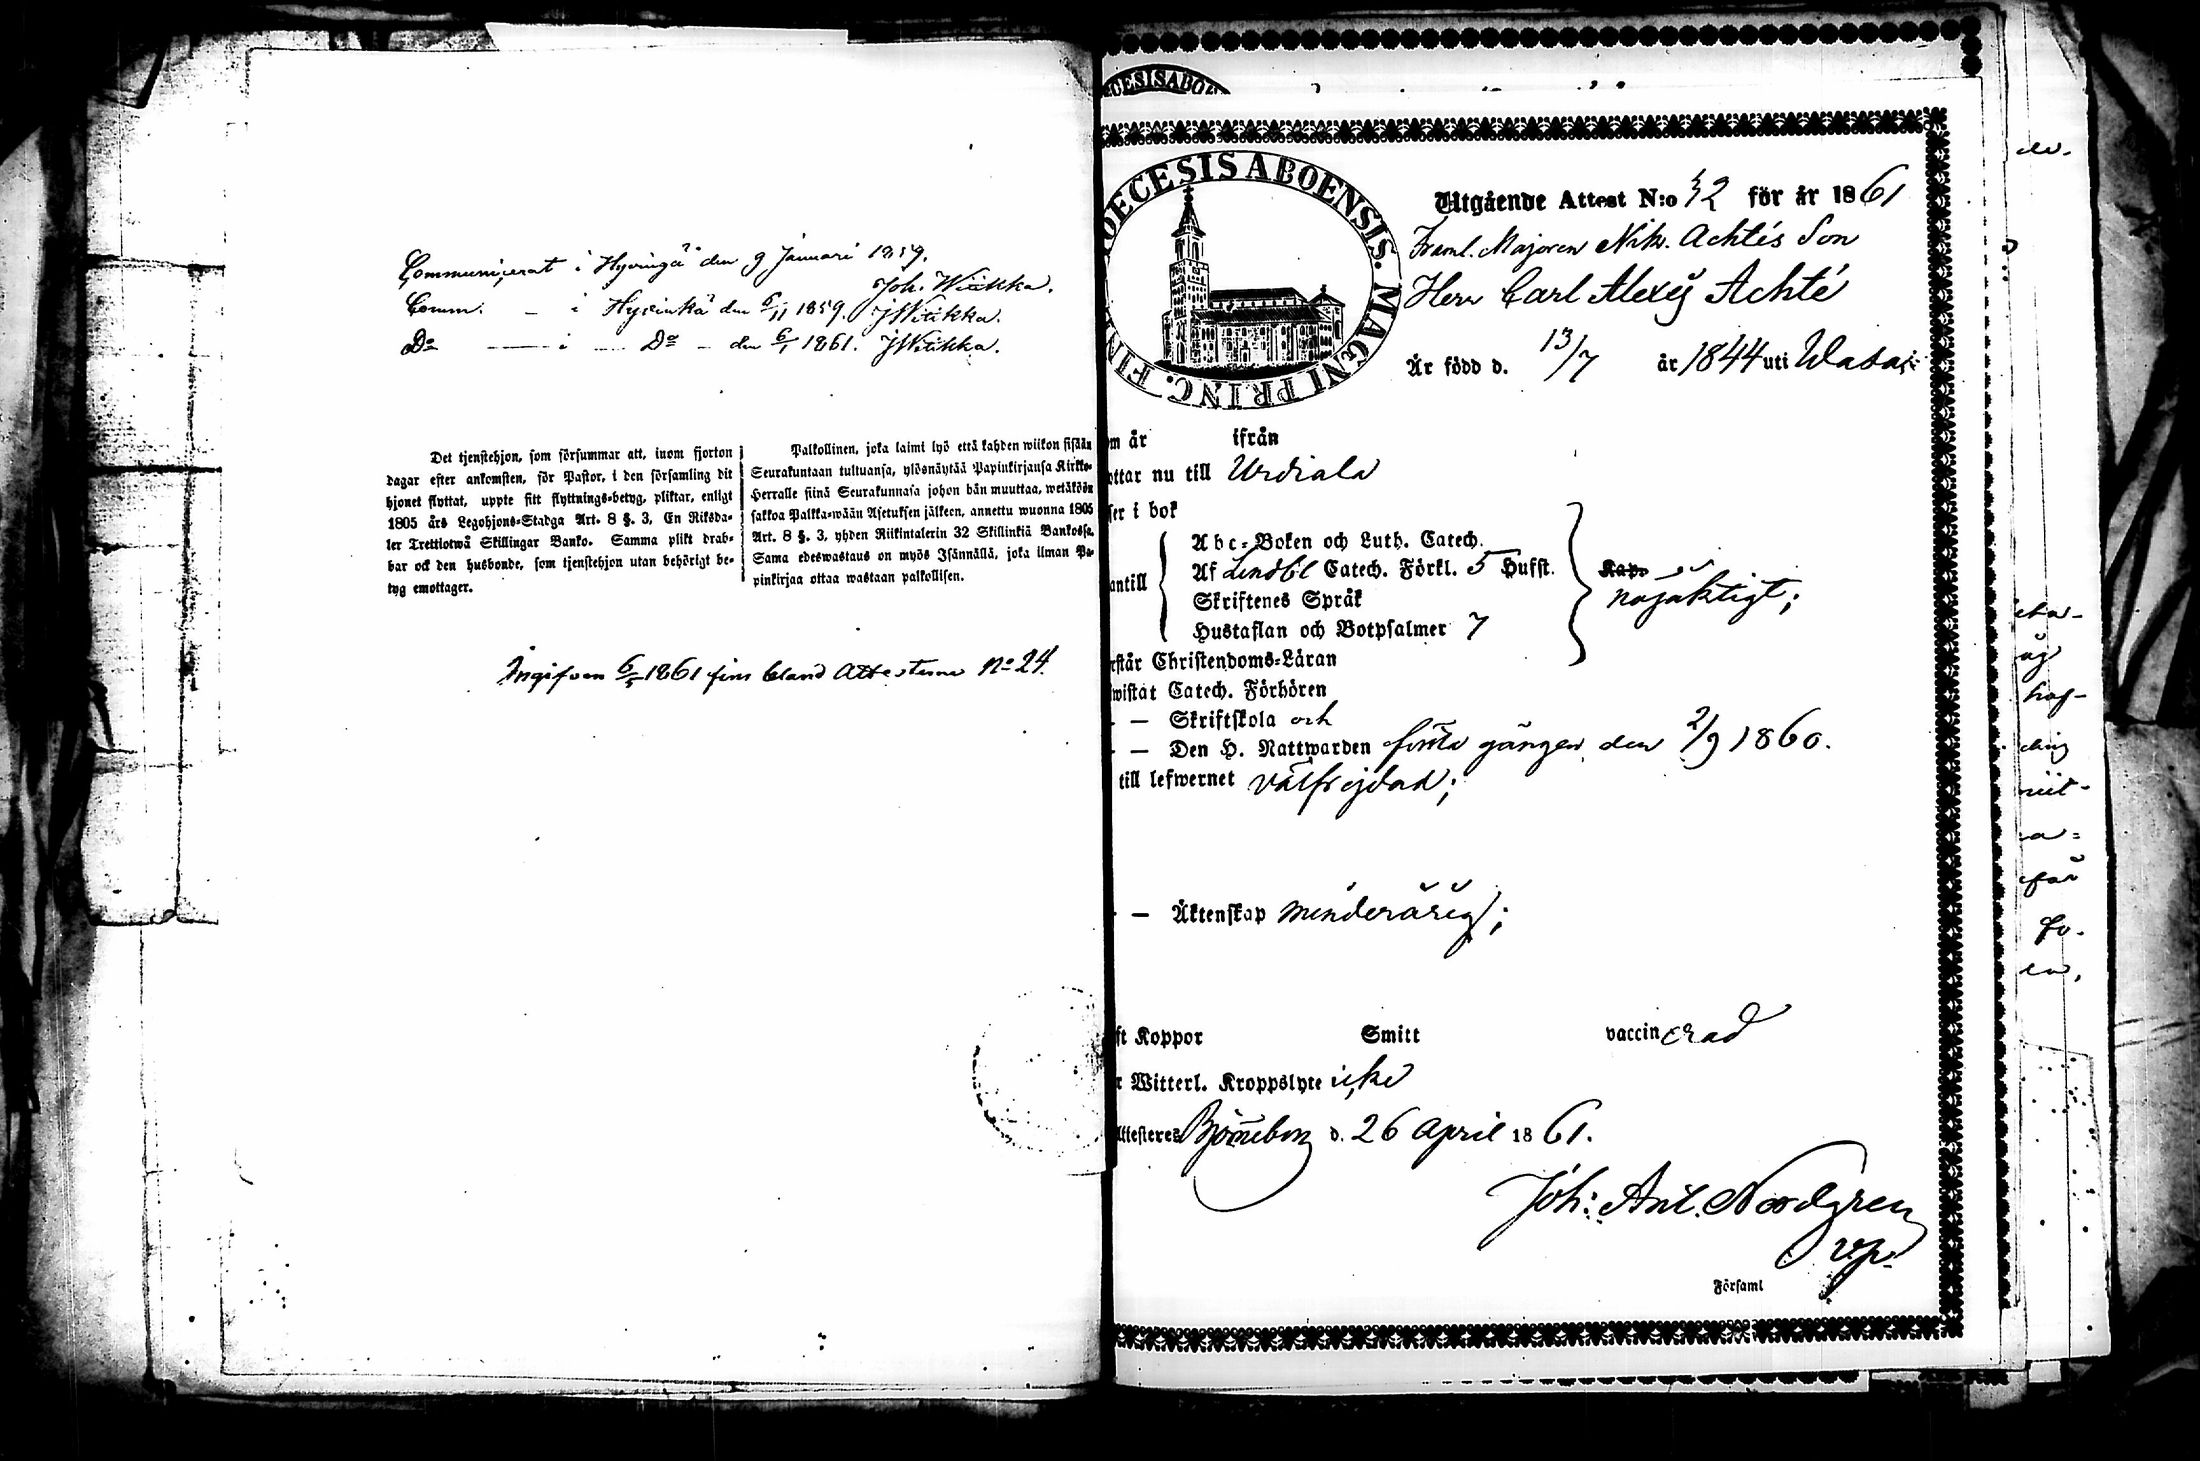 Communicerat i Hyvingä den 9 Januari 1859.
Joh. Wiikka.
Comm. — i Hyvinkä den 6/11 1859. JWiikka.
Do — i — Do — den 6/1 1861. JWiikka.
Det tjenstehjon, som försummar att, inom fjorton
dagar efter ankomsten, för Pastor, i den församling dit
hjonet flyttat, uppte sitt flyttnings-betyg, pliktar, enligt
1805 års Legohjons-Stadga Art. 8 §. 3, En Riksda-
ler Trettiotwå Skillingar Banko. Samma plikt drab-
bar ock den husbonde, som tjenstehjon utan behörigt be-
tyg emottager.
Palkollinen, joka laimi lyö että kahden wiikon sisään
Seurakuntaan tultuansa, ylösnäytää Papinkirjansa Kirkko-
herralle siinä Seurakunnasa johon hän muuttaa, wetäköön
sakkoa Palkka-wään Asetuksen jälkeen, annettu wuonna 1805
Art. 8 §. 3, yhden Riikintalerin 32 Skillinkiä Bankossa.
Sama edeswastaus on myös Isännällä, joka ilman Pa-
pinkirjaa ottaa wastaan palkollisen.
Ingifven 6/5 1861 fins bland Attesterne No 24.
ECESIS ABOE
DIOECESIS ABOENSIS. MAGNI PRINC. FIN
Utgående Attest N:o 32 för år 1861
Framl. Majoren Nik. Achtés Son
Herr Carl Alexej Achté
Är född d. 13/7 år 1844 uti Wasa;
om år ifrån
ottar nu till Urdiala
ser i bok
antill
Abc-Boken och Luth. Catech.
Af Lindbl Catech. Förkl. 5 Hufst. Kap.
Skriftenes Språk
Hustaflan och Botpsalmer 7
nöjaktigt;
rstår Christendoms-Läran
wistat Catech. Förhören
— Skriftskola och
— Den H. Nattwarden första gången den 2/9 1860.
till lefwernet välfrejdad;
— Äktenskap minderårig;
ft Koppor Smitt vaccinerad
r Witterl. Kroppslyte icke
Attesteres Björneborg d. 26 April 1861.
Joh: Ant. Nordgren
vp.
Församl